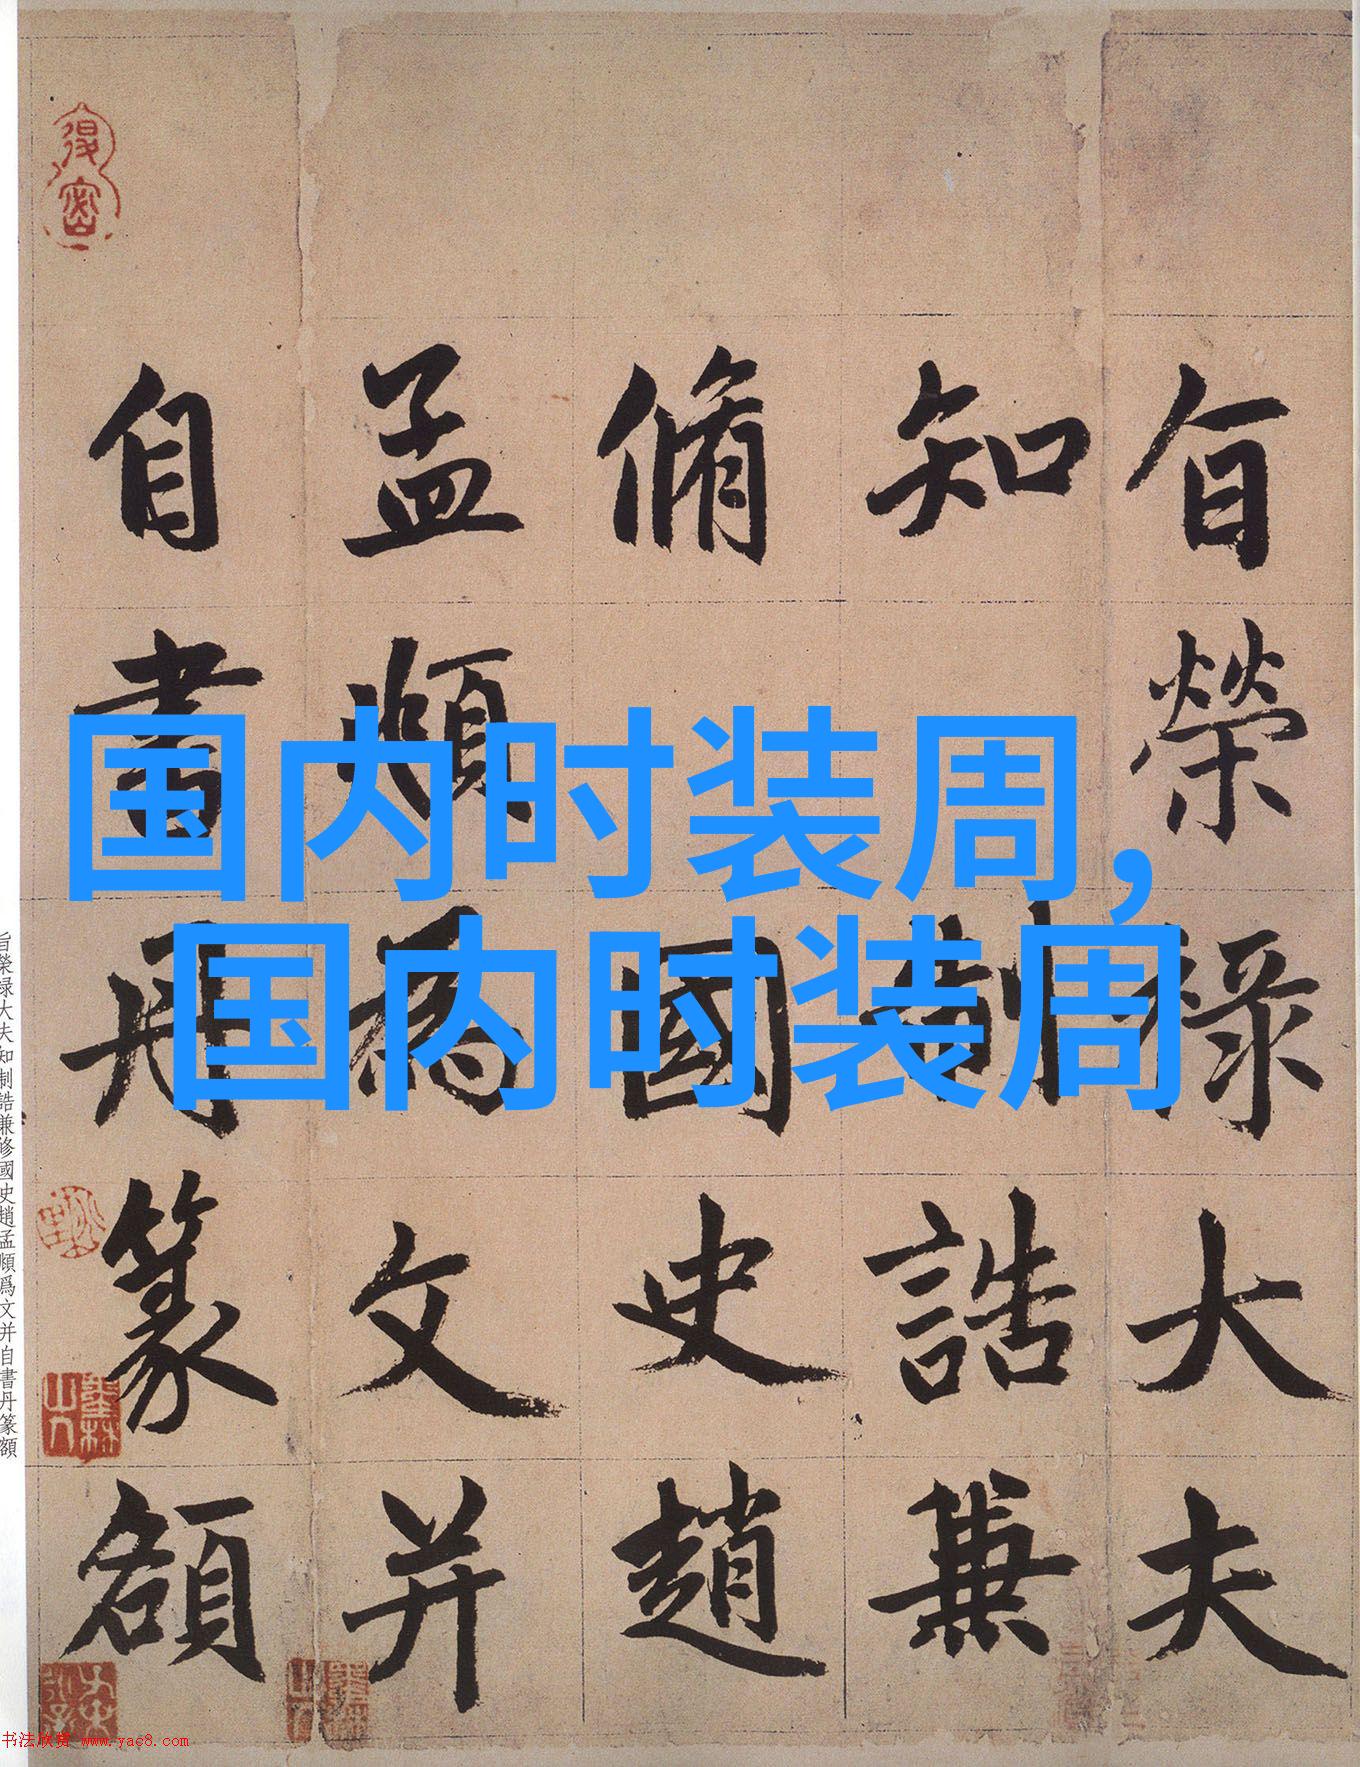 国内时装周,
国内时装周
旨榮祿大夫
知制誥兼
脩國史趙
孟頫為文并
自書丹篆額
旨榮禄大夫知制誥兼修國史趙孟頫爲文并自書丹篆額
书法欣赏 www.yac8.com